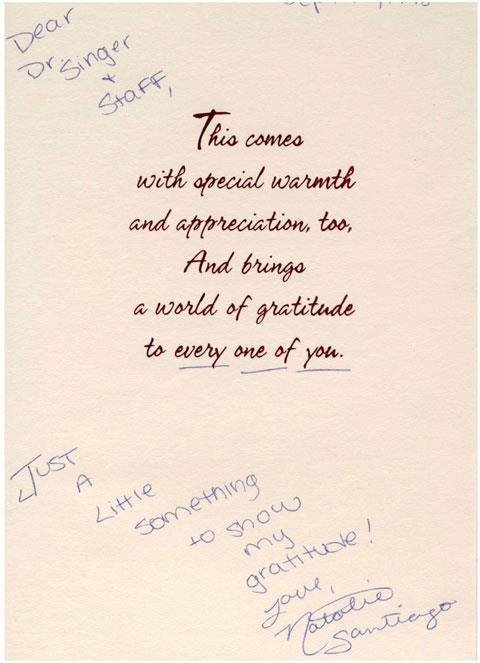 Dear
Dr. Singer
+
Staff,
This comes
with special warmth
and appreciation, too,
And brings
a world of gratitude
to every one of you.
Just
A
Little
something
to show
my
gratitude!
Love,
Natalie
Santiago